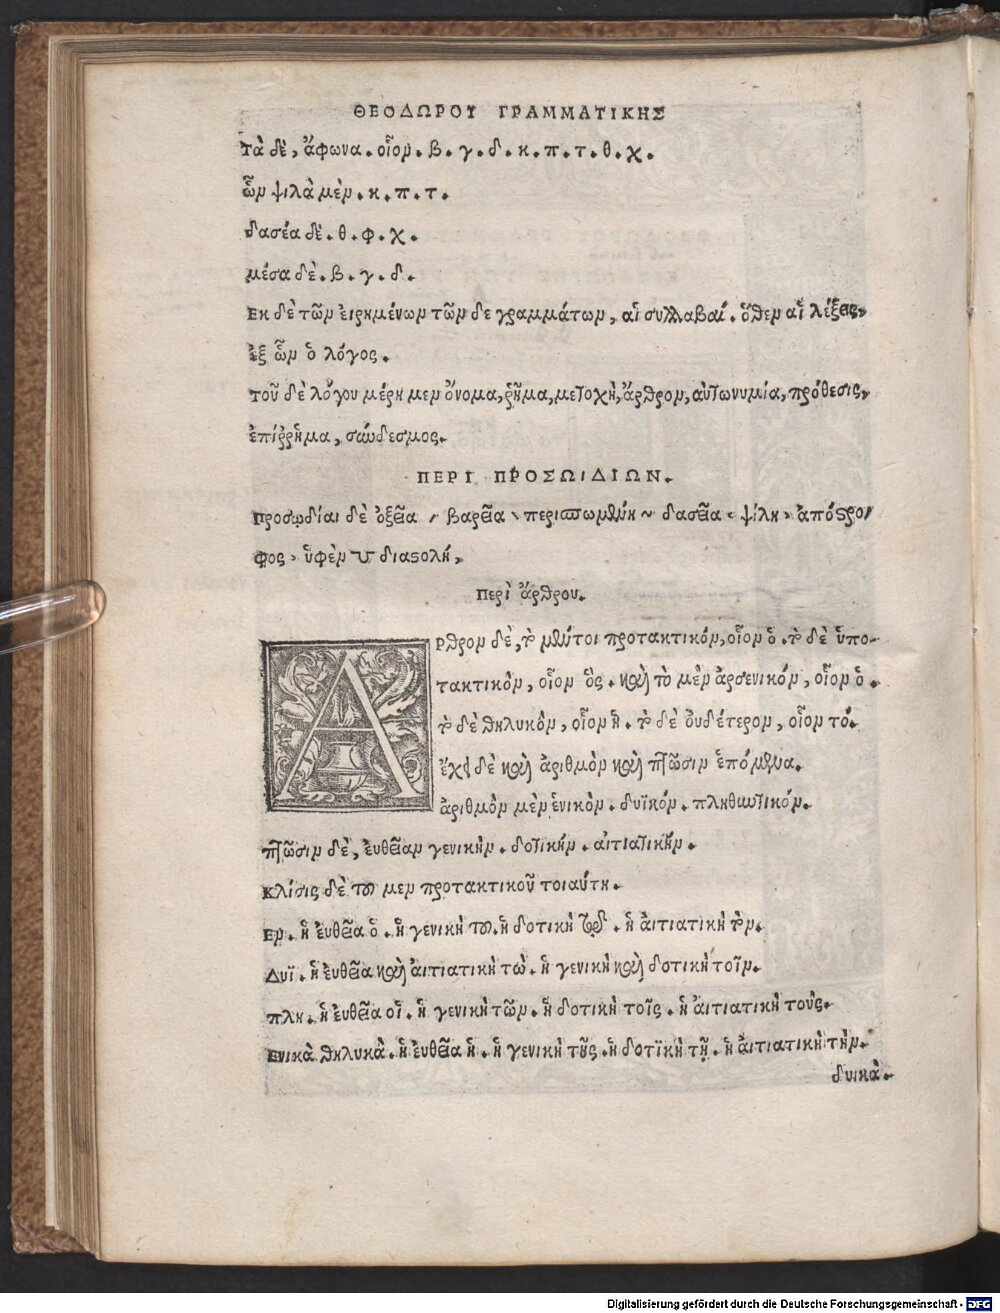 ΘΕΟΔΩΡΟΥ ΓΡΑΜΜΑΤΙΚΗΣ
Τὰ δὲ, ἄφωνα. οἷον. β. γ. δ. κ. π. τ. θ. χ.
ὧν ψιλὰ μὲν. κ. π. τ.
δασέα δὲ. θ. φ. χ.
μέσα δὲ. β. γ. δ.
Εκ δὲ τῶν ἐιρημένων τῶν δε γραμμάτων, αἱ συλλαβαί. ὅθεν αἱ λέξεις,
ἐξ ὧν ὁ λόγος.
τοῦ δὲ λόγου μέρη μεν ὄνομα, ῥῆμα, μετοχὴ, ἄρθρον, αὐτωνυμία, πρόθεσις,
ἐπίῤῥημα, σύνδεσμος.
ΠΕΡΙ ΠΡΟΣΩΙΔΙΩΝ.
Προσῳδίαι δὲ ὀξεῖα / βαρεῖα \ περισπωμένη ~ δασεῖα ʿ ψίλη ʾ ἀπόστρο/
φος ʾ ὑφὲν ‿ διαστολή,
Περὶ ἄρθρου.
ΑΡθρον δὲ, τὸ μέντοι προτακτικόν, οἷον ὁ. τὸ δὲ ὑπο-
τακτικὸν, οἷον ὃς. καὶ τὸ μὲν ἀρσενικόν, οἷον ὁ.
τὸ δὲ θηλυκὸν, οἷον ἡ. τὸ δὲ ὀυδέτερον, οἷον τό.
ἔχει δὲ καὶ ἀριθμὸν καὶ πτῶσιν ἑπόμενα.
ἀριθμὸν μὲν ἑνικὸν. δυϊκόν. πληθυντικόν.
πτῶσιν δὲ, ἐυθεῖαν γενικὴν. δοτικήν. αἰτιατικήν.
Κλίσις δὲ τοῦ μεν προτακτικοῦ τοιαύτη.
Εν. ἡ ἐυθεῖα ὁ. ἡ γενικὴ τοῦ. ἡ δοτικὴ τῷ. ἡ ἀιτιατικὴ τὸν.
Δυϊ. ἡ ἐυθεῖα καὶ ἀιτιατικὴ τὼ. ἡ γενικὴ καὶ δοτικὴ τοῖν.
πλη. ἡ ἐυθεῖα οἱ. ἡ γενικὴ τῶν. ἡ δοτικὴ τοῖς. ἡ ἀιτιατικὴ τοὺς.
Ενικὰ θηλυκὰ. ἡ ἐυθεῖα ἡ. ἡ γενικὴ τῆς. ἡ δοτϊκὴ τῇ. ἡ ἀιτιατικὴ τὴν.
δυικὰ.
Digitalisierung gefördert durch die Deutsche Forschungsgemeinschaft - DFG